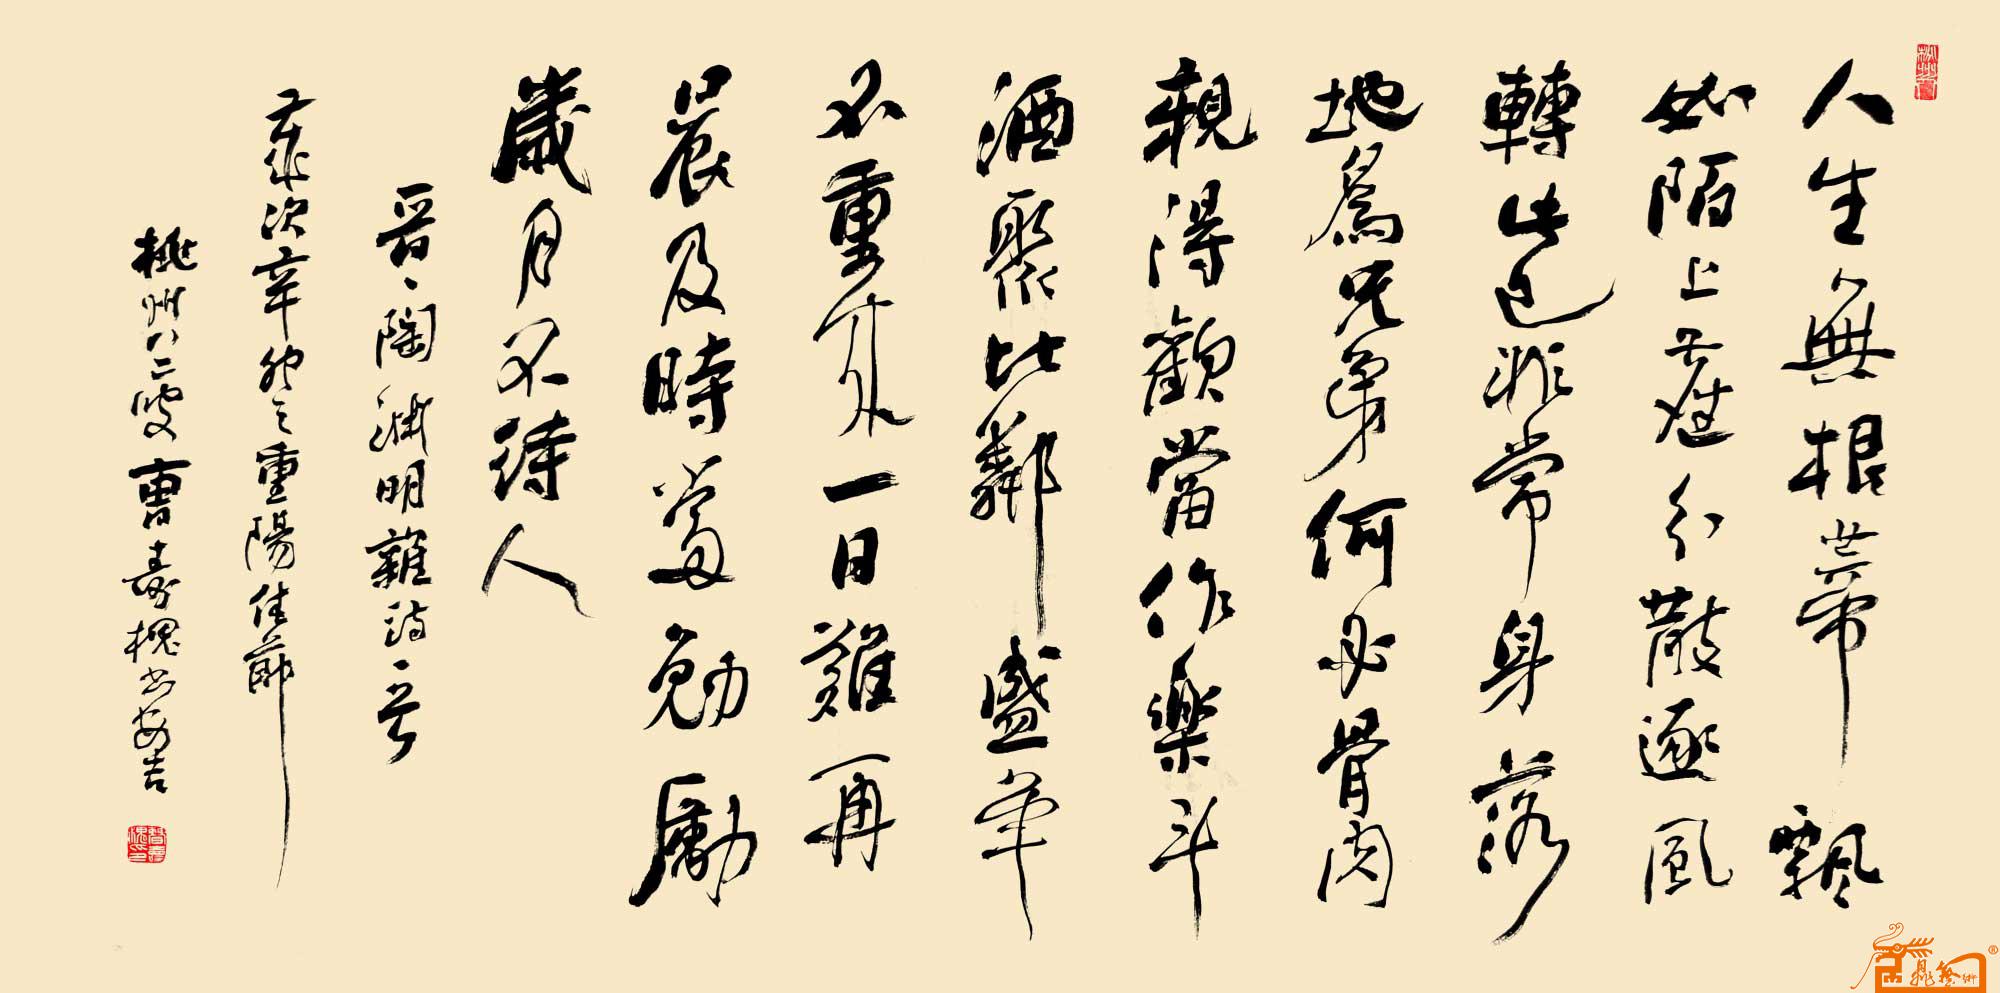 人生無根蒂飄
如陌上塵分散逐風
轉此已非常身落
地爲兄弟何必骨肉
親得歡當作樂斗
酒聚比鄰盛年
不重來一日難再
晨及時當勉勵
歲月不待人
晉、陶淵明雜詩、首
歲次辛卯之重陽佳節
桃州八二叟曹壽槐書安吉